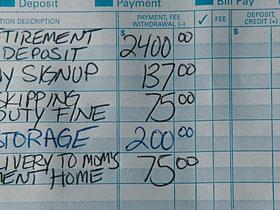 Deposit Payment Bill Pay
TION DESCRIPTION PAYMENT, FEE WITHDRAWAL (–) ✓ FEE DEPOSIT, CREDIT (+)
ETIREMENT
DEPOSIT $2400 00 $
SIGNUP 137 00
SKIPPING
DUTY FINE 75 00
STORAGE 200 00
LIVERY TO MOM'S
MENT HOME 75 00